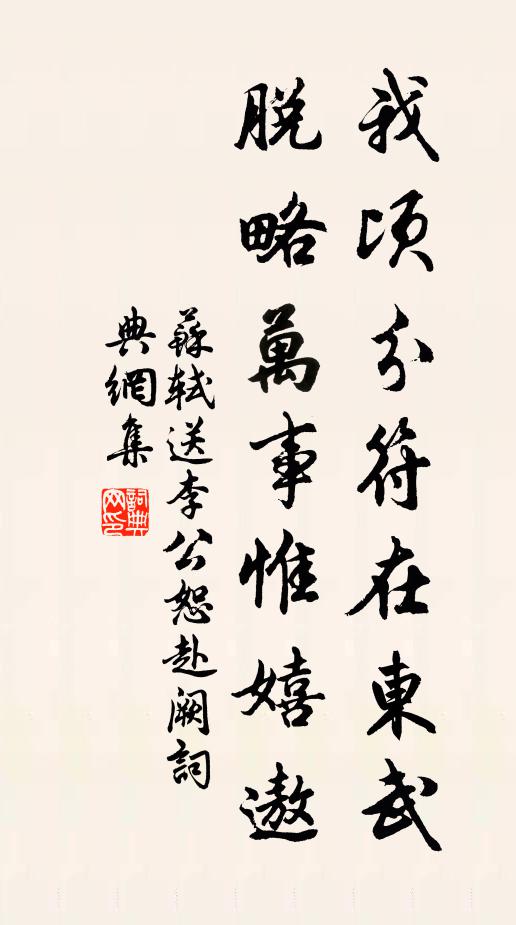 我頃分符在東武
脫略萬事惟嬉遨
蘇軾送李公恕赴闕詞
典網集
詞典网印